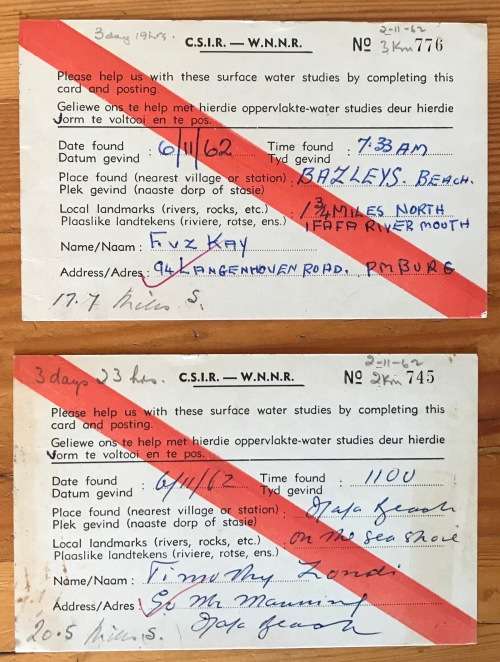 3 day 19 hrs.
2-11-62
C.S.I.R. — W.N.N.R.
Nº 3 Km 776
Please help us with these surface water studies by completing this
card and posting
Geliewe ons te help met hierdie oppervlakte-water studies deur hierdie
vorm te voltooi en te pos.
Date found
Datum gevind : 6/11/62
Time found
Tyd gevind : 7.33 AM
Place found (nearest village or station) : BAZLEYS. BEACH.
Plek gevind (naaste dorp of stasie)
Local landmarks (rivers, rocks, etc.) : 1 3/4 MILES NORTH
Plaaslike landtekens (riviere, rotse, ens.) IFAFA RIVER MOUTH
Name/Naam : KAY
Address/Adres : 94 LANGENHOVEN ROAD. PMBURG
17.7 Miles S.
3 days 23 hrs.
2-11-62
C.S.I.R. — W.N.N.R.
Nº 2 Km 745
Please help us with these surface water studies by completing this
card and posting.
Geliewe ons te help met hierdie oppervlakte-water studies deur hierdie
Vorm te voltooi en te pos.
Date found
Datum gevind : 6/11/62
Time found
Tyd gevind : 1100
Place found (nearest village or station) : Ifafa Beach
Plek gevind (naaste dorp of stasie)
Local landmarks (rivers, rocks, etc.) : on the sea shore
Plaaslike landtekens (riviere, rotse, ens.)
Name/Naam : Timothy Londi
Address/Adres : c/o Mr Manning
Ifafa Beach
20.5 Miles S.